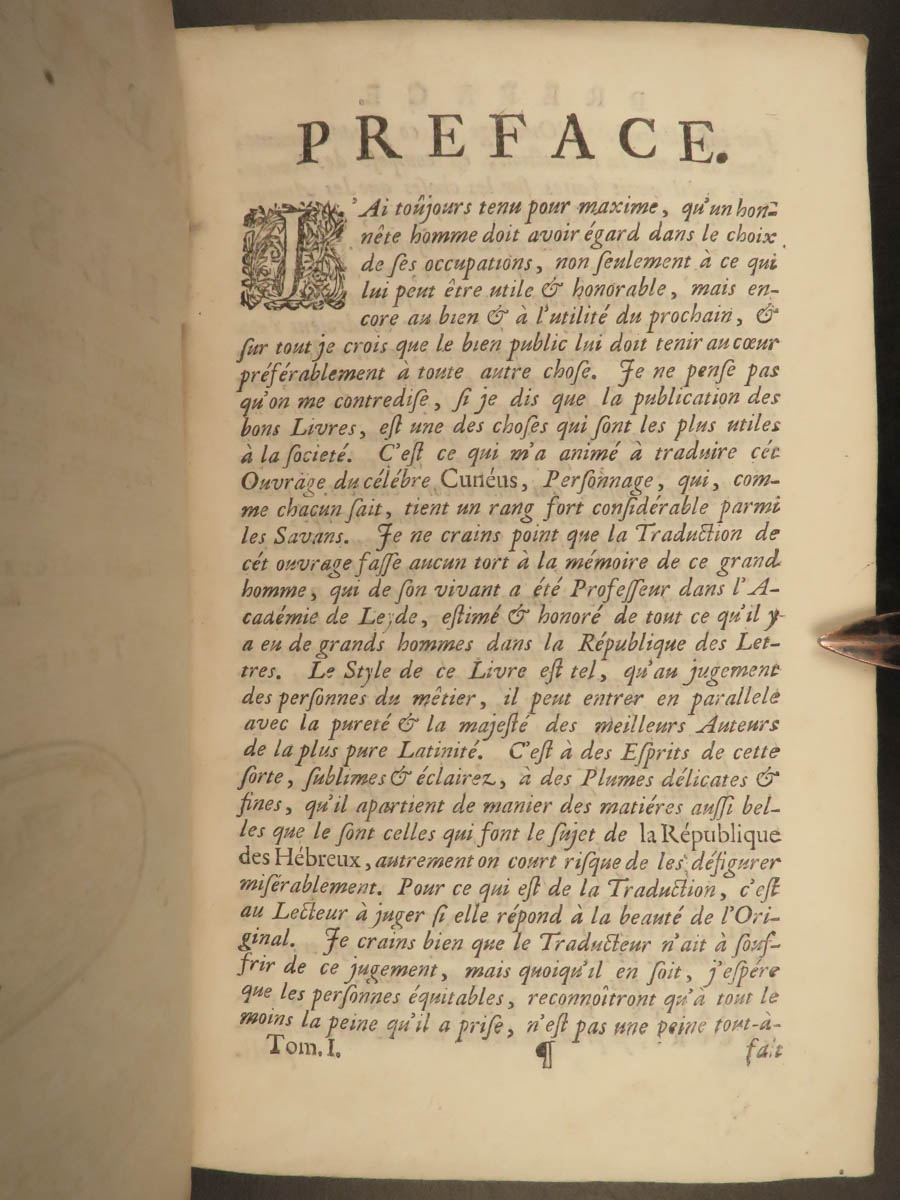 PREFACE.
J'Ai toûjours tenu pour maxime, qu'un hon-
nête homme doit avoir égard dans le choix
de ſes occupations, non ſeulement à ce qui
lui peut être utile & honorable, mais en-
core au bien & à l'utilité du prochain, &
ſur tout je crois que le bien public lui doit tenir au cœur
préférablement à toute autre choſe. Je ne penſe pas
qu'on me contrediſe, ſi je dis que la publication des
bons Livres, eſt une des choſes qui ſont les plus utiles
à la ſocieté. C'eſt ce qui m'a animé à traduire cét
Ouvrage du célébre Cunéus, Perſonnage, qui, com-
me chacun ſait, tient un rang fort conſidérable parmi
les Savans. Je ne crains point que la Traduction de
cét ouvrage faſſe aucun tort à la mémoire de ce grand
homme, qui de ſon vivant a été Profeſſeur dans l'A-
cadémie de Leyde, eſtimé & honoré de tout ce qu'il y
a eu de grands hommes dans la République des Let-
tres. Le Style de ce Livre eſt tel, qu'au jugement
des perſonnes du mêtier, il peut entrer en parallele
avec la pureté & la majeſté des meilleurs Auteurs
de la plus pure Latinité. C'eſt à des Eſprits de cette
ſorte, ſublimes & éclairez, à des Plumes délicates &
fines, qu'il apartient de manier des matiéres auſſi bel-
les que le ſont celles qui font le ſujet de la République
des Hébreux, autrement on court riſque de les défigurer
miſérablement. Pour ce qui eſt de la Traduction, c'eſt
au Lecteur à juger ſi elle répond à la beauté de l'Ori-
ginal. Je crains bien que le Traducteur n'ait à ſouf-
frir de ce jugement, mais quoiqu'il en ſoit, j'eſpére
que les perſonnes équitables, reconnoîtront qu'à tout le
moins la peine qu'il a priſe, n'eſt pas une peine tout-à-
Tom. I. ¶ fait